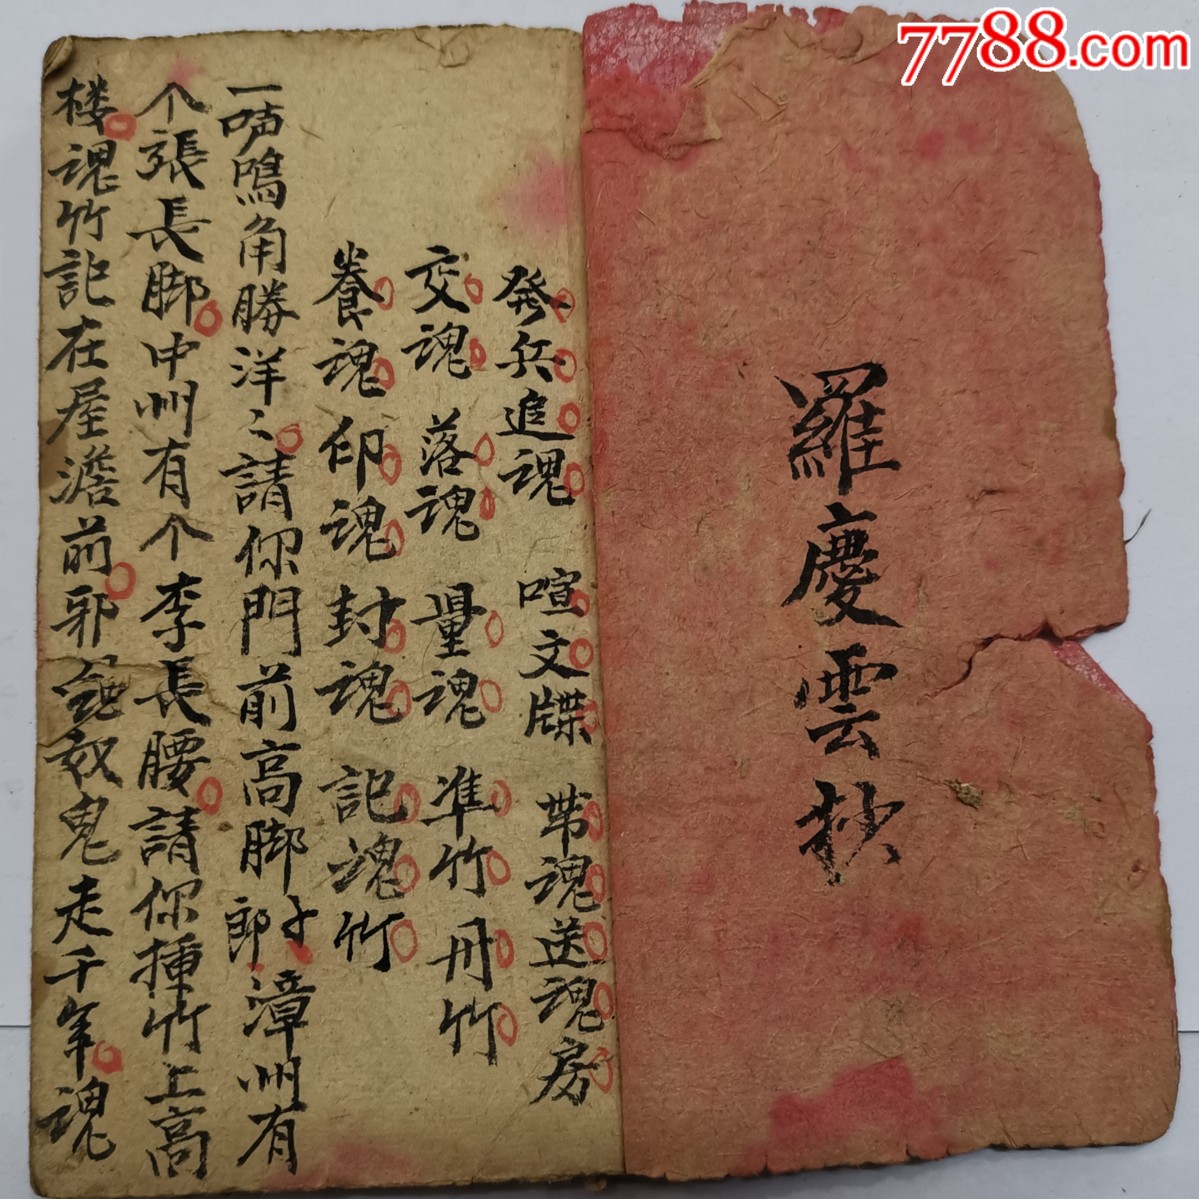 7788.com
羅慶雲抄
發兵追魂 喧文牒 带魂送魂房
交魂 落魂 量魂 準竹 冊竹
養魂 印魂 封魂 記魂竹
一声鳴角勝洋〻請你門前高脚郎漳州有
个張長脚中州有个李長腰請你揷竹上高
楼魂竹記在屋澹前邪 奴鬼走千年魂